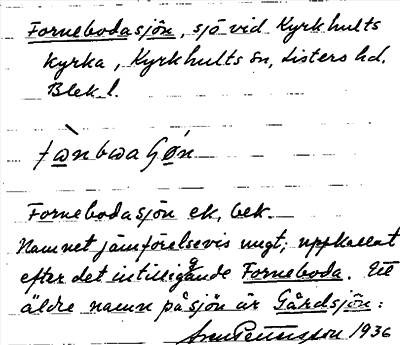 Fornebodasjön, sjö vid Kyrkhults
kyrka, Kyrkhults sn, Listers hd.
Blek. l.
Fornebodasjön ek, bek.
Namnet jämförelsevis ungt; uppkallat
efter det intilliggände Forneboda. Ett
äldre namn på sjön är Gårdsjön:
1936